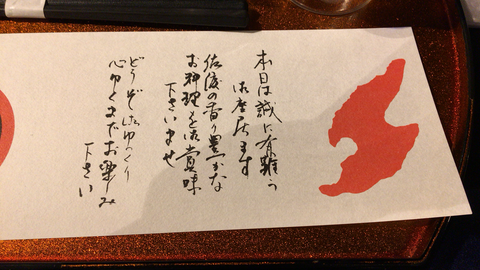 本日は誠に有難う
御座居ます
佐渡の香り豊かな
お料理を御賞味
下さいませ
どうぞごゆっくり
心ゆくまでお楽しみ
下さい